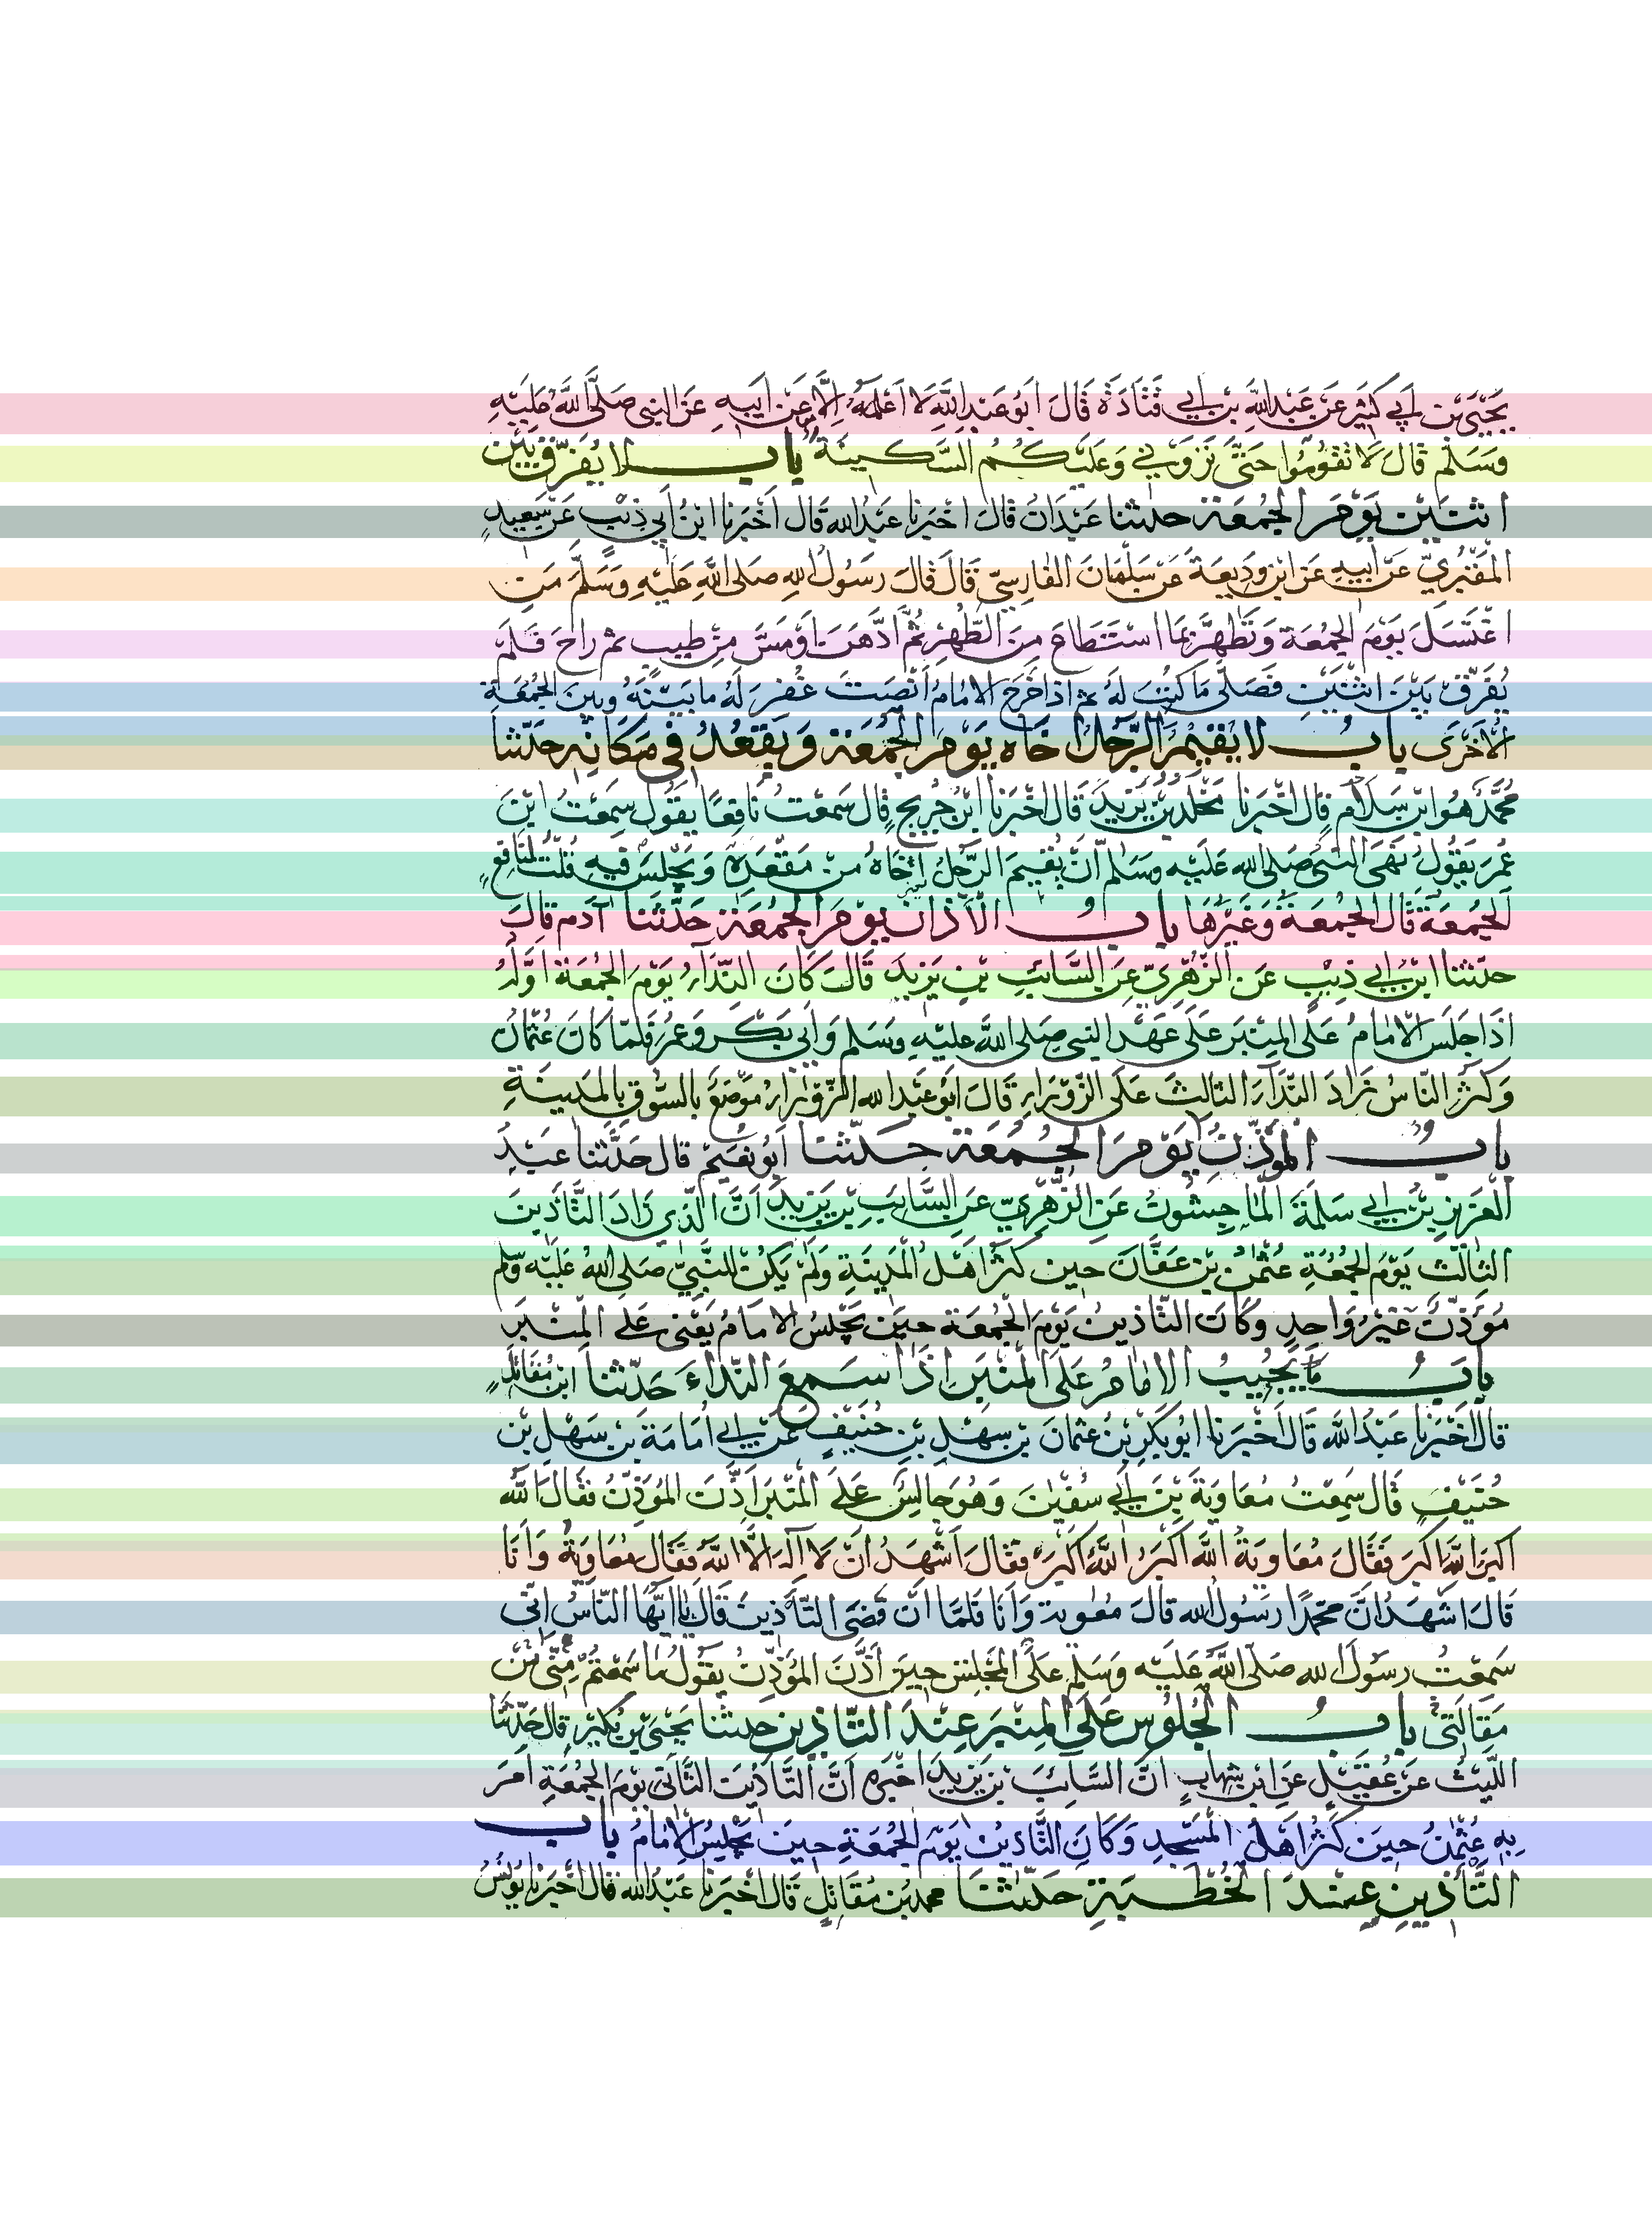 يحيى بن ابي كثير عن عبد الله بن ابي قتادة قال ابو عبد الله لا اعلمه الا عن ابيه عن النبي صلى الله عليه
وسلم قال لا تقوموا حتى تروني وعليكم السكينة باب لا يفرق بين
اثنين يوم الجمعة حدثنا عبدان قال اخبرنا عبد الله قال اخبرنا ابن ابي ذئب عن سعيد
المقبري عن ابيه عن ابن وديعة عن سلمان الفارسي قال قال رسول الله صلى الله عليه وسلم من
اغتسل يوم الجمعة وتطهر بما استطاع من الطهر ثم ادهن او مس من طيب ثم راح فلم
يفرق بين اثنين فصلى ما كتب له ثم اذا خرج الامام انصت غفر له ما بينه وبين الجمعة
الاخرى باب لا يقيم الرجل اخاه يوم الجمعة ويقعد في مكانه حدثنا
محمد هو ابن سلام قال اخبرنا مخلد بن يزيد قال اخبرنا ابن جريج قال سمعت نافعا يقول سمعت ابن
عمر يقول نهى النبي صلى الله عليه وسلم ان يقيم الرجل اخاه من مقعده ويجلس فيه قلت لنافع
الجمعة قال الجمعة وغيرها باب الاذان يوم الجمعة حدثنا آدم قال
حدثنا ابن ابي ذئب عن الزهري عن السائب بن يزيد قال كان النداء يوم الجمعة اوله
اذا جلس الامام على المنبر على عهد النبي صلى الله عليه وسلم وابي بكر وعمر فلما كان عثمان
وكثر الناس زاد النداء الثالث على الزوراء قال ابو عبد الله الزوراء موضع بالسوق بالمدينة
باب المؤذن يوم الجمعة حدثنا ابو نعيم قال حدثنا عبد
العزيز بن ابي سلمة الماجشون عن الزهري عن السائب بن يزيد ان الذي زاد التأذين
الثالث يوم الجمعة عثمن بن عفان حين كثر اهل المدينة ولم يكن للنبي صلى الله عليه وسلم
مؤذن غير واحد وكان التأذين يوم الجمعة حين يجلس الامام يعني على المنبر
باب ما يجيب الامام على المنبر اذا سمع النداء حدثنا ابن مقاتل
قال اخبرنا عبد الله قال اخبرنا ابو بكر بن عثمان بن سهل بن حنيف عن ابي امامة بن سهل بن
حنيف قال سمعت معاوية بن ابي سفين وهو جالس على المنبر اذن المؤذن فقال الله
اكبر الله اكبر فقال معاوية الله اكبر الله اكبر فقال اشهد ان لا اله الا الله فقال معاوية وانا
قال اشهد ان محمدا رسول الله قال معوية وانا فلما ان قضى التأذين قال يا ايها الناس اني
سمعت رسول الله صلى الله عليه وسلم على المجلس حين اذن المؤذن يقول ما سمعتم مني من
مقالتي باب الجلوس على المنبر عند التأذين حدثنا يحيى بن بكير قال حدثنا
الليث عن عقيل عن ابن شهاب ان السائب بن يزيد اخبره ان التأذين الثاني يوم الجمعة امر
به عثمن حين كثر اهل المسجد وكان التأذين يوم الجمعة حين يجلس الامام باب
التأذين عند الخطبة حدثنا محمد بن مقاتل قال اخبرنا عبد الله قال اخبرنا يونس